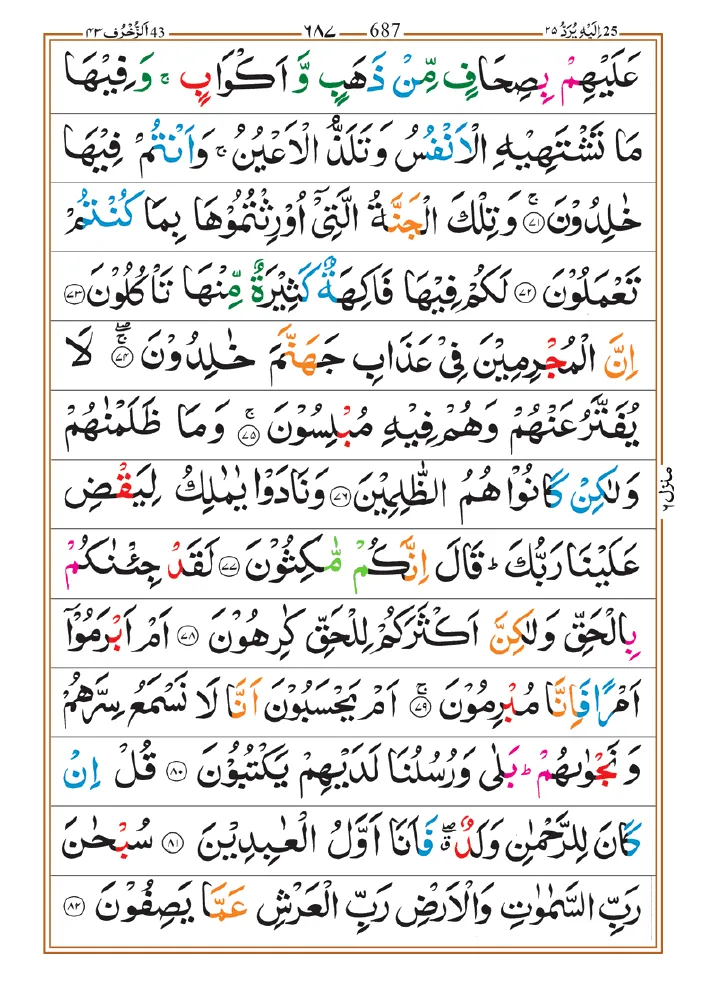 اِلَيْهِ يُرَدُّ ٢٥ 25 687 ٦٨٧ اَلزُّخْرُف ٤٣ 43
عَلَيْهِمْ بِصِحَافٍ مِّنْ ذَهَبٍ وَّ اَكْوَابٍ ۚ وَفِيْهَا
مَا تَشْتَهِيْهِ الْاَنْفُسُ وَ تَلَذُّ الْاَعْيُنُ ۚ وَاَنْتُمْ فِيْهَا
خٰلِدُوْنَ ۚ‏﴿۷۱﴾ وَ تِلْكَ الْجَنَّةُ الَّتِىْۤ اُوْرِثْتُمُوْهَا بِمَا كُنْتُمْ
تَعْمَلُوْنَ ﴿۷۲﴾ لَكُمْ فِيْهَا فَاكِهَةٌ كَثِيْرَةٌ مِّنْهَا تَاْكُلُوْنَ ﴿۷۳﴾
اِنَّ الْمُجْرِمِيْنَ فِىْ عَذَابِ جَهَنَّمَ خٰلِدُوْنَ ۚۖ ﴿۷۴﴾ لَا
يُفَتَّرُ عَنْهُمْ وَهُمْ فِيْهِ مُبْلِسُوْنَ ۚ ﴿۷۵﴾ وَمَا ظَلَمْنٰهُمْ
وَلٰكِنْ كَانُوْا هُمُ الظّٰلِمِيْنَ ﴿۷۶﴾ وَنَادَوْا يٰمٰلِكُ لِيَقْضِ
عَلَيْنَا رَبُّكَ ؕ قَالَ اِنَّكُمْ مّٰكِثُوْنَ ﴿۷۷﴾ لَقَدْ جِئْنٰكُمْ
بِالْحَقِّ وَلٰكِنَّ اَكْثَرَكُمْ لِلْحَقِّ كٰرِهُوْنَ ﴿۷۸﴾ اَمْ اَبْرَمُوْۤا
اَمْرًا فَاِنَّا مُبْرِمُوْنَ ۚ ﴿۷۹﴾ اَمْ يَحْسَبُوْنَ اَنَّا لَا نَسْمَعُ سِرَّهُمْ
وَ نَجْوٰىهُمْ ؕ بَلٰى وَرُسُلُنَا لَدَيْهِمْ يَكْتُبُوْنَ ﴿۸۰﴾ قُلْ اِنْ
كَانَ لِلرَّحْمٰنِ وَلَدٌ ۖ فَاَنَا اَوَّلُ الْعٰبِدِيْنَ ﴿۸۱﴾ سُبْحٰنَ
رَبِّ السَّمٰوٰتِ وَالْاَرْضِ رَبِّ الْعَرْشِ عَمَّا يَصِفُوْنَ ﴿۸۲﴾
منزل ٦